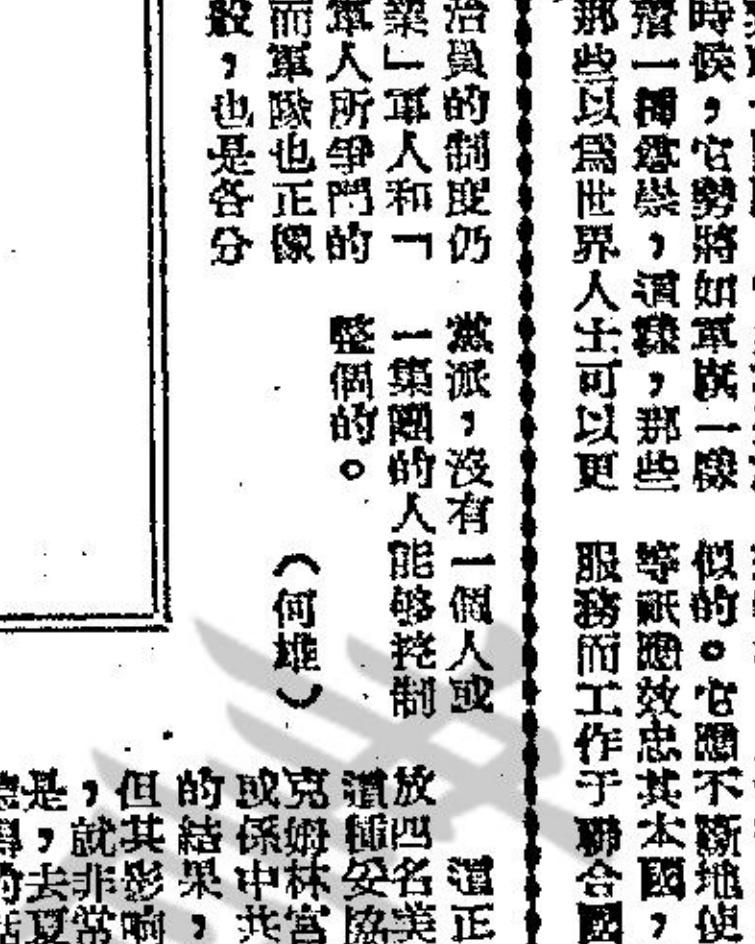 時候，它勢將如軍隊一樣
落一種尊崇，這樣，那些
那些以爲世界人士可以更
似的。它應不斷地使
等祇應效忠其本國，
服務而工作于聯合國
治員的制度仍
業」軍人和「
軍人所爭鬥的
而軍隊也正像
般，也是各分
黨派，沒有一個人或
一集團的人能够控制
整個的。
（何雄）
這正
放四名美
這種妥協
克姆林宮
或係中共
的結果，
但其影响
，就非常
是，去夏